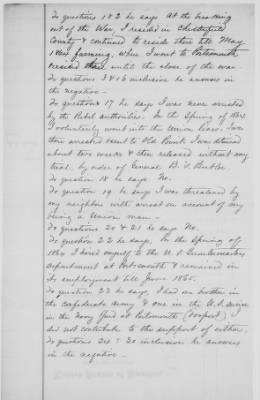 To questions 1 & 2 he says At the breaking
out of the War, I resided in Chesterfield
County & continued to reside there till May
1864 farming, when I went to Portsmouth
resided there until the close of the war
To questions 3 & 16 inclusive he answers in
the negative -
To question 17 he says I was never arrested
by the Rebel authorities. In the Spring of 1864
I voluntarily went into the Union lines. I was
then arrested sent to Old Point & was detained
about two weeks & then released without any
trial, by order of General B. F. Butler.
To question 18 he says No.
To question 19 he says I was threatened by
my neighbors with arrest on account of my
being a Union man -
To questions 20 & 21 he says No.
To question 22 he says, In the Spring of
1864 I hired myself to the U. S. Quartermasters
department at Portsmouth & remained in
its employment till June 1865.
To question 23 he says, I had one brother in
the confederate army & one in the U. S. service
in the Navy Yard at Portsmouth (Gosport) I
did not contribute to the support of either.
To questions 24 to 30 inclusive he answers
in the negative -